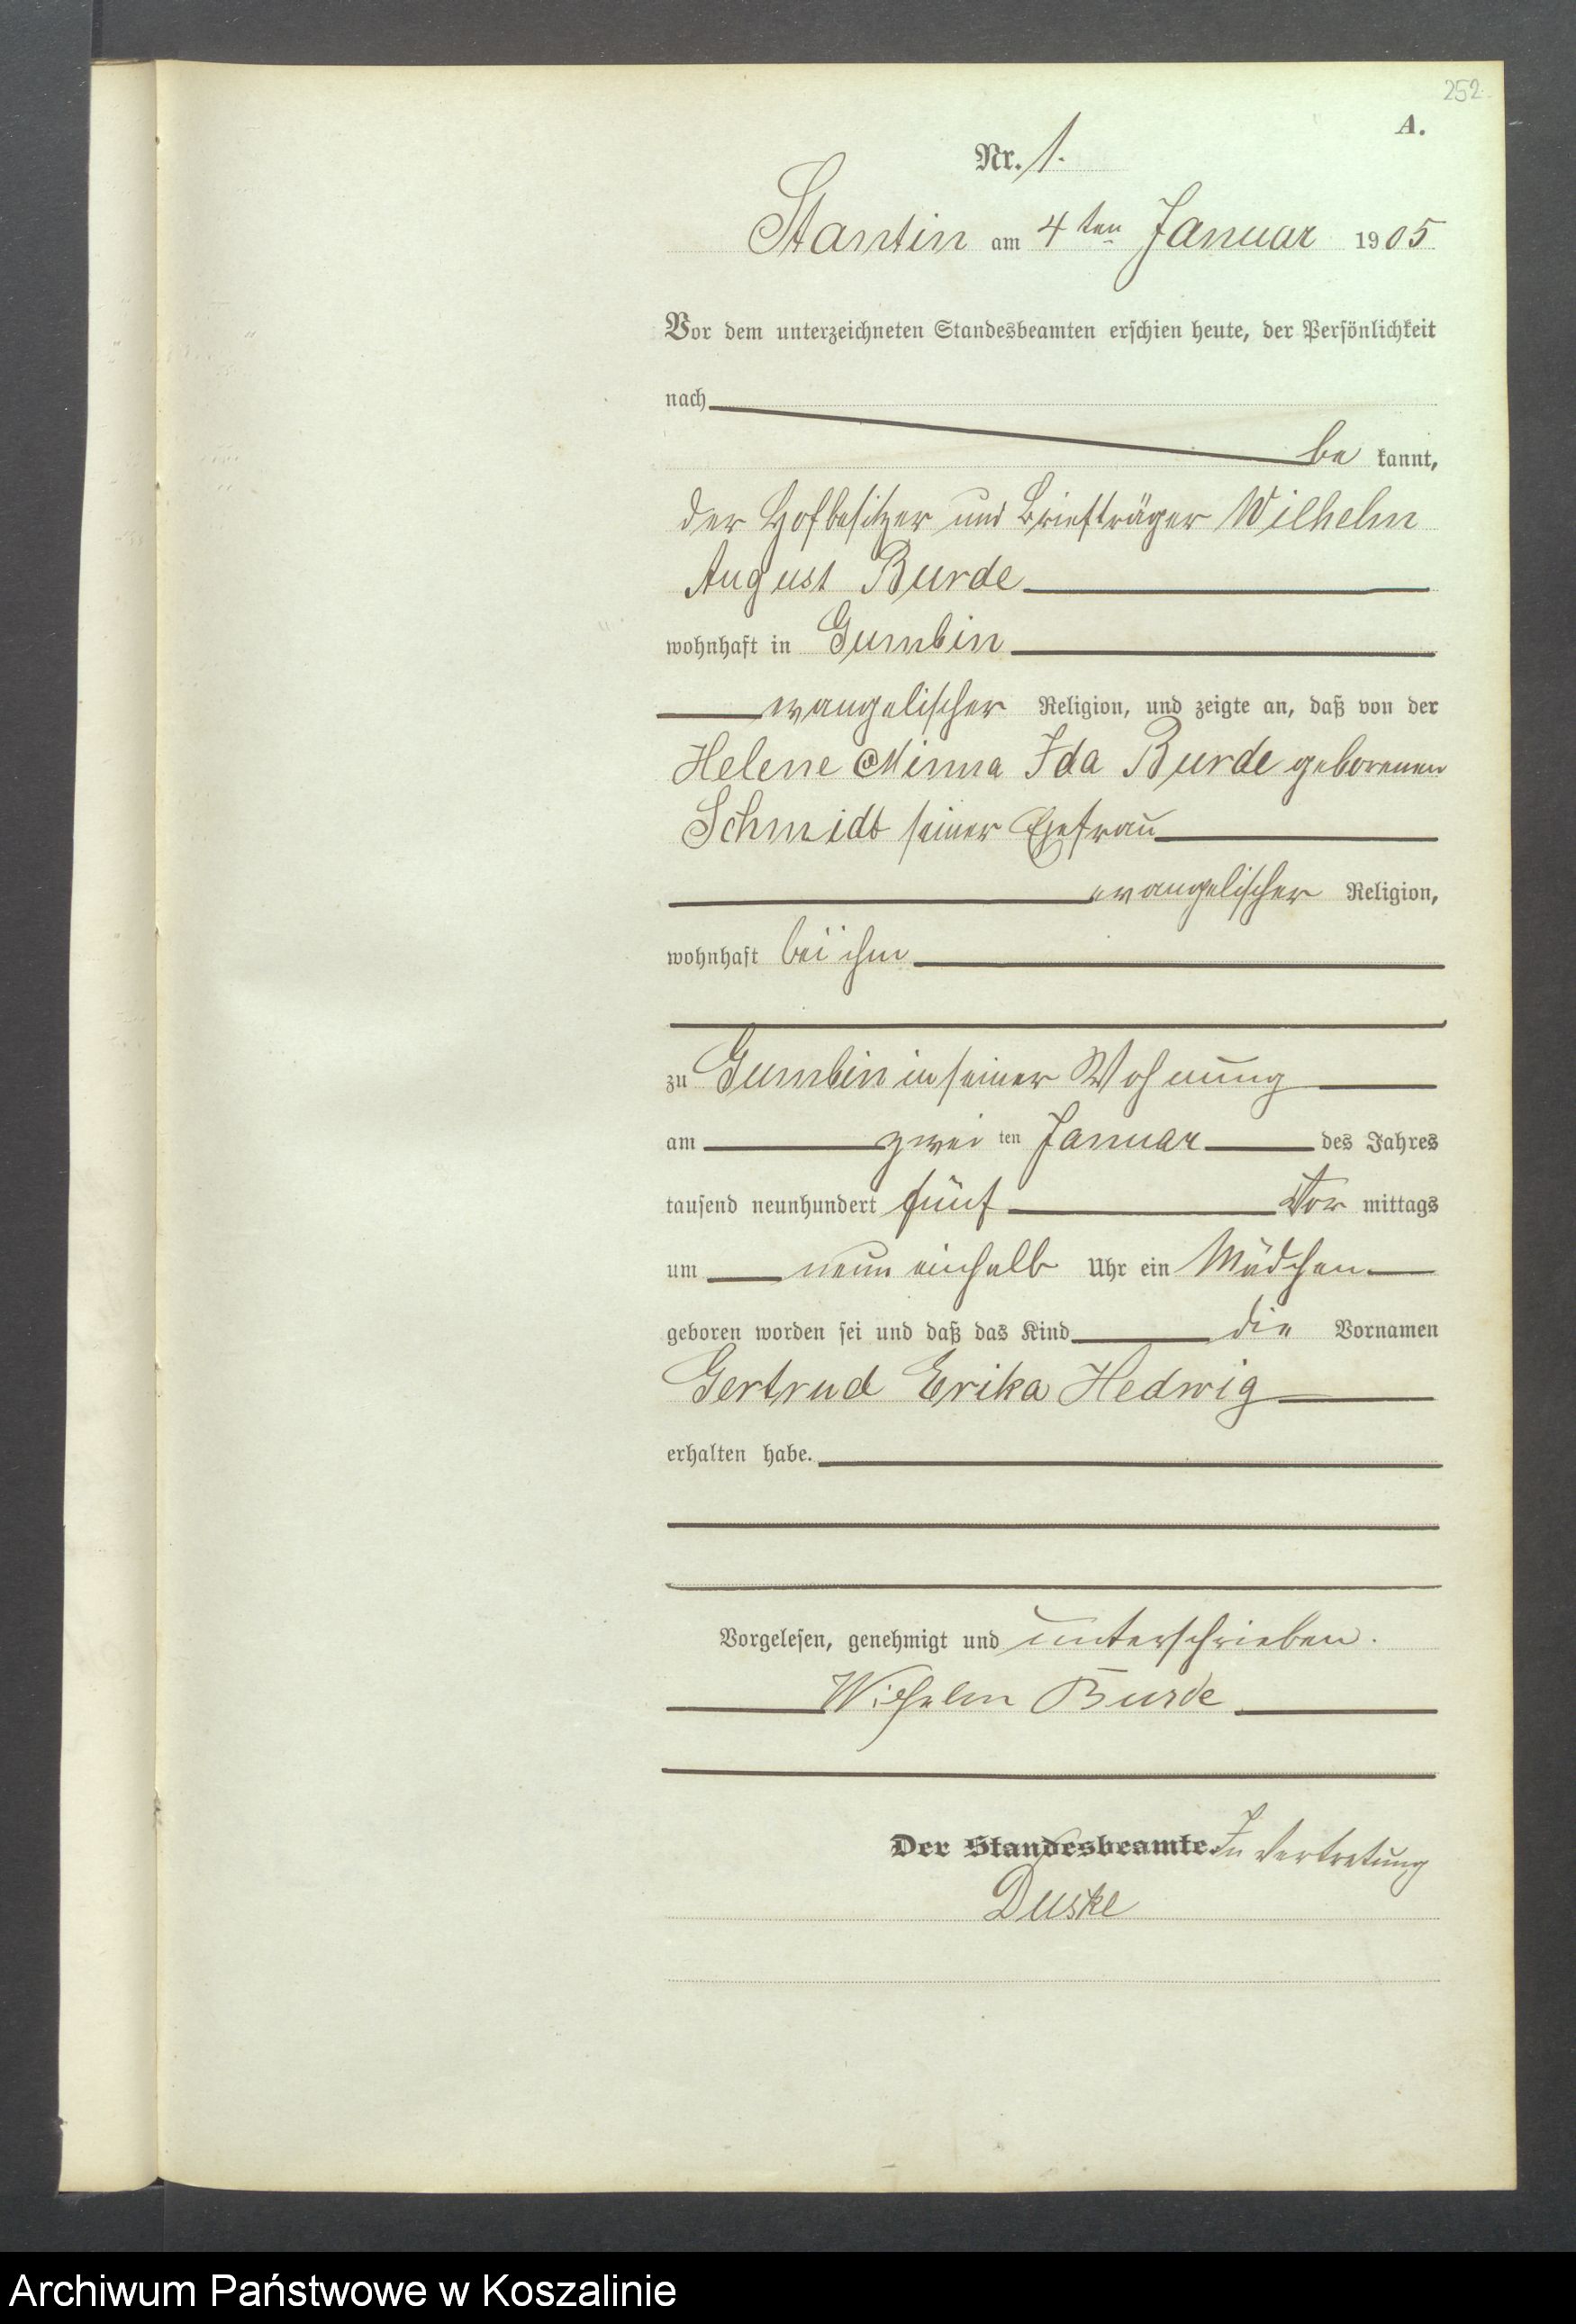 252.
A.
Nr. 1.
Stantin am 4ten Januar 1905
Vor dem unterzeichneten Standesbeamten erschien heute, der Persönlichkeit
nach
be kannt,
der Hofbesitzer und Briefträger Wilhelm
August Burde
wohnhaft in Gumbin
evangelischer Religion, und zeigte an, daß von der
Helene Minna Ida Burde geborenen
Schmidt seiner Ehefrau
evangelischer Religion,
wohnhaft bei ihm
zu Gumbin in seiner Wohnung
am zwei ten Januar des Jahres
tausend neunhundert fünf Vor mittags
um neun einhalb Uhr ein Mädchen
geboren worden sei und daß das Kind die Vornamen
Gertrud Erika Hedwig
erhalten habe.
Vorgelesen, genehmigt und unterschrieben.
Wilhelm Burde
Der Standesbeamte. In Vertretung
Duske
Archiwum Państwowe w Koszalinie